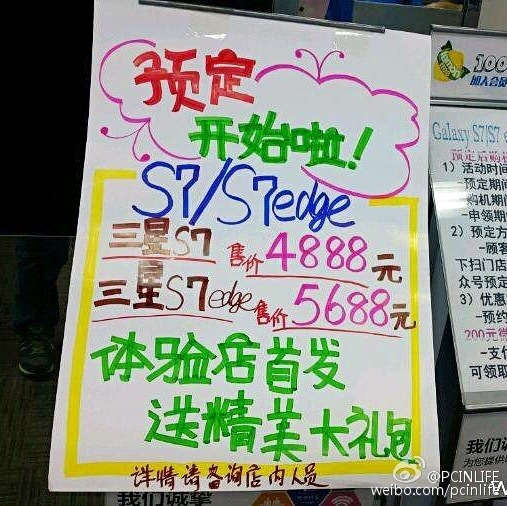 预定
开始啦!
S7/S7edge
三星S7 售价4888元
三星S7edge售价5688元
体验店首发
送精美大礼包
详情请咨询店内人员
100
加入会员
Galaxy S7/S7 e
预定后购机
1) 活动时间
- 预定期间
购机期间
-申领期
2) 预定方
- 顾客
下扫门店
众号预定
3) 优惠
- 预约
200元
-支付
可领取
我们
为您提供
我们诚挚
@PCINLIFE
weibo.com/pcinlife